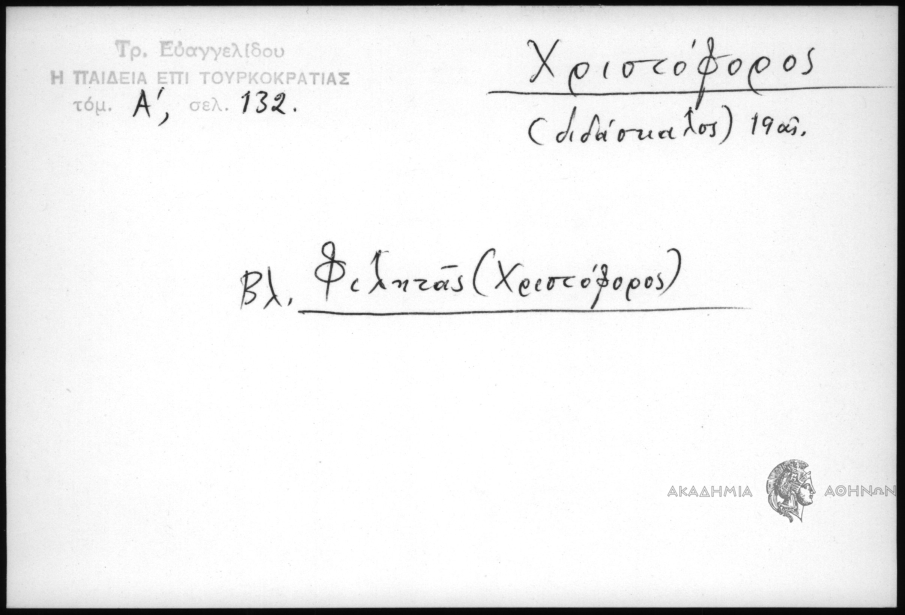 Τρ. Εὐαγγελίδου
Η ΠΑΙΔΕΙΑ ΕΠΙ ΤΟΥΡΚΟΚΡΑΤΙΑΣ
τόμ. Α', σελ. 132.
Χριστόφορος
(διδάσκαλος) 19 αἰ.
Βλ. Φιλητᾶς (Χριστόφορος)
ΑΚΑΔΗΜΙΑ ΑΘΗΝΩΝ